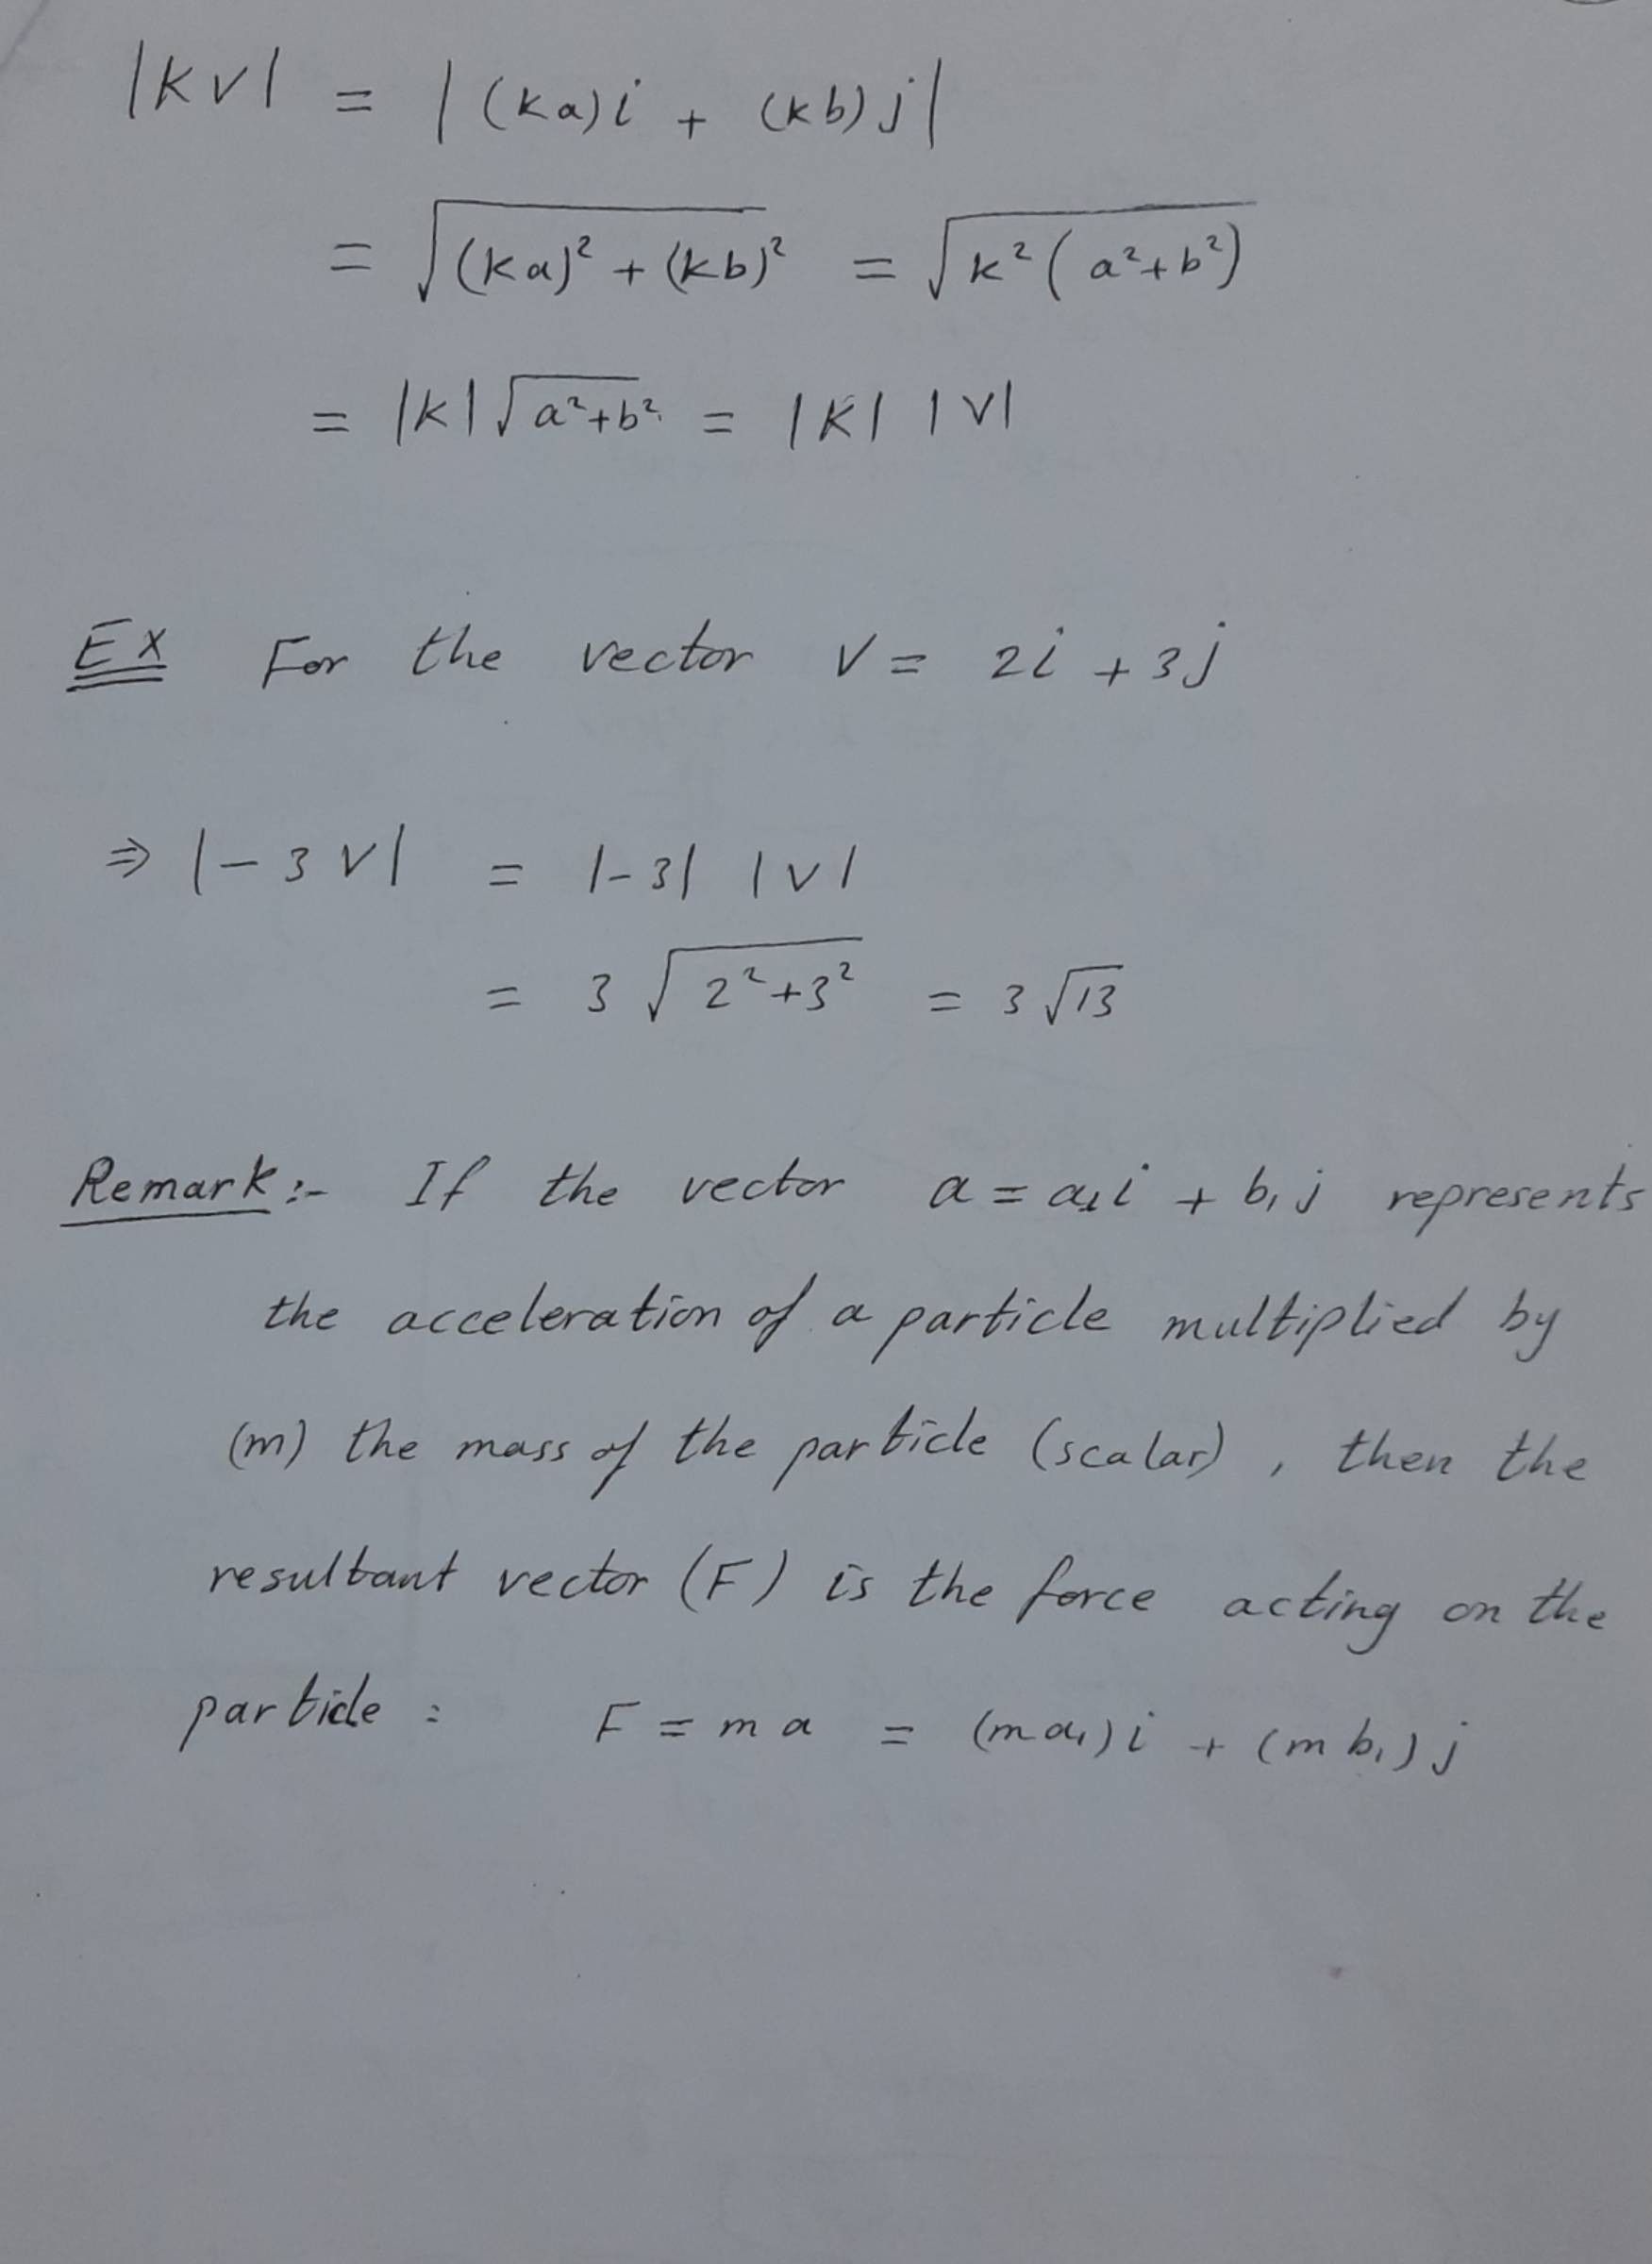 |kv| = |(ka)i + (kb)j|
= √(ka)² + (kb)² = √k²(a²+b²)
= |k|√a²+b² = |k| |v|
Ex For the vector v = 2i + 3j
⇒ |-3v| = |-3| |v|
= 3√2²+3² = 3√13
Remark:- If the vector a = a₁i + b₁j represents
the acceleration of a particle multiplied by
(m) the mass of the particle (scalar), then the
resultant vector (F) is the force acting on the
particle: F = ma = (ma₁)i + (mb₁)j